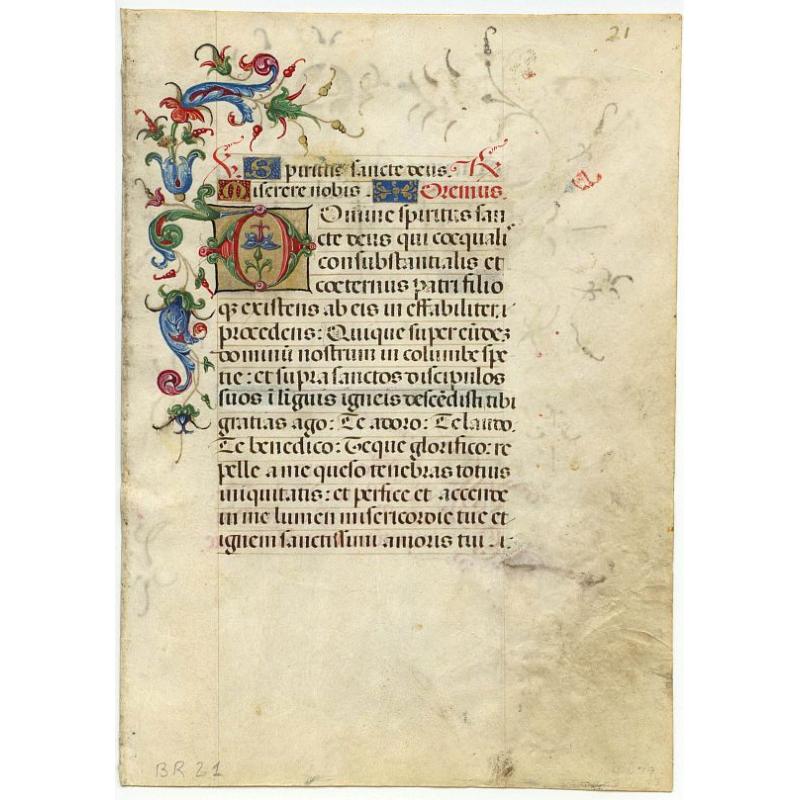 21
Spiritus sancte deus. R
Miserere nobis. Oremus
Domine spiritus san
cte deus qui coequali
consubstantialis et
coeternus patri filio
qz existens ab eis in effabiliter
procedens: Qui que super eũdez
dominũ nostrum in columbe spe
tie: et supra sanctos discipulos
suos ĩ linguis igneis descẽdisti, tibi
gratias ago: Te adoro: Te laudo.
Te benedico: Teque glorifico: re
pelle a me queso tenebras totius
iniquitatis: et perfice et accende
in me lumen misericordie tue et
ignem sanctissimi amoris tui
BR 21